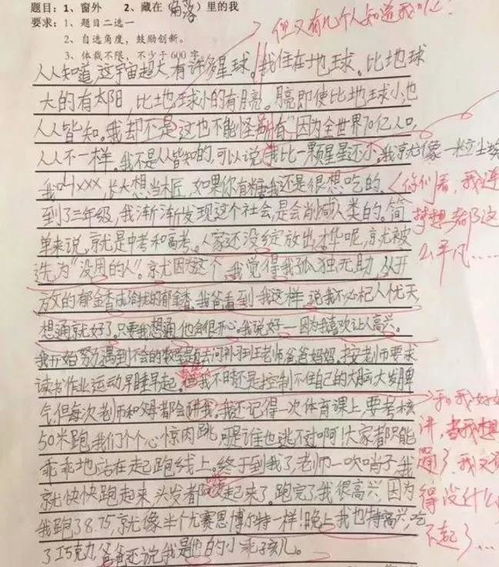 题目：1、窗外 2、藏在（角落）里的我
要求：1、题目二选一
2、自选角度，鼓励创新。
3、体裁不限，不少于600字
但又有几个人知道我呢？
人人知道，这宇宙超大有许多星球。我住在地球。比地球
大的有太阳，比地球小的有月亮。月亮即使比地球小，也
人人皆知。我却不是，这也不能怪别人，因为全世界70亿人口，
人人不一样。我不是人皆知的，可以说我比一颗星星还小，我就像一粒尘埃
我叫xxx，长大想当木匠，如果你有糖我还是很想吃的。
到了三年级，我渐渐发现这个社会，是会削减人类的。简
单来说，就是中考和高考。人家还没绽放出才华呢，就被
选为"没用的人"。就因为这个，我觉得我孤独无助，从开
放的郁金香
我爸看到我这样，说我不必杞人忧天，
想通就好了，只要我想通，他会很开心。我说好——因为我喜欢让人高兴。
我开始努力，遇到不会的数学题就去问
老师爸爸妈妈。按老师要求
读书作业运动早睡早起。但我不时还是控制不住自己的大脑大发脾
气，但每次老师和
都会
我。我还记得一次体育课上要考核
50米跑，我们个个心惊肉跳，可是谁也逃不过啊！大家都只能
乖乖地站在起跑线上。终于到我了，老师一吹哨子，我
就快快跑起来，头发都
起来了。跑完了我很高兴，因为
我跑了8.75，就像半个尤塞恩博尔特一样！晚上我也特高兴，吃
了巧克力，爸爸还说我是他的小乖孩儿。
你们看，我连
梦想都
了这
么平凡……